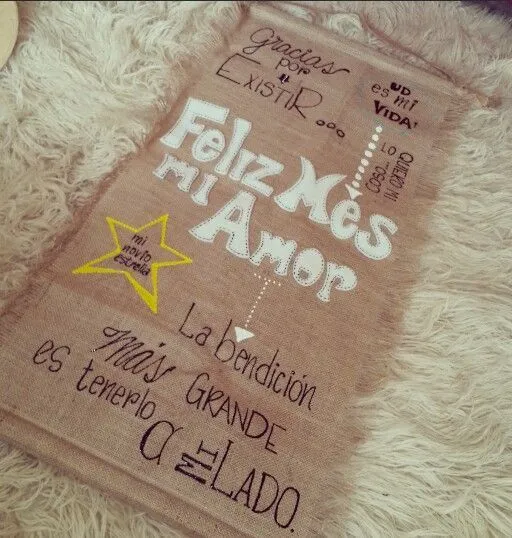 Gracias
por
EXISTIR...
UD
es mi
VIDA!
LO
QUIERO MI
COSO...
Feliz Mes
mi Amor
mi
novio
estrella
La bendición
Más GRANDE
es tenerlo
a MI LADO.